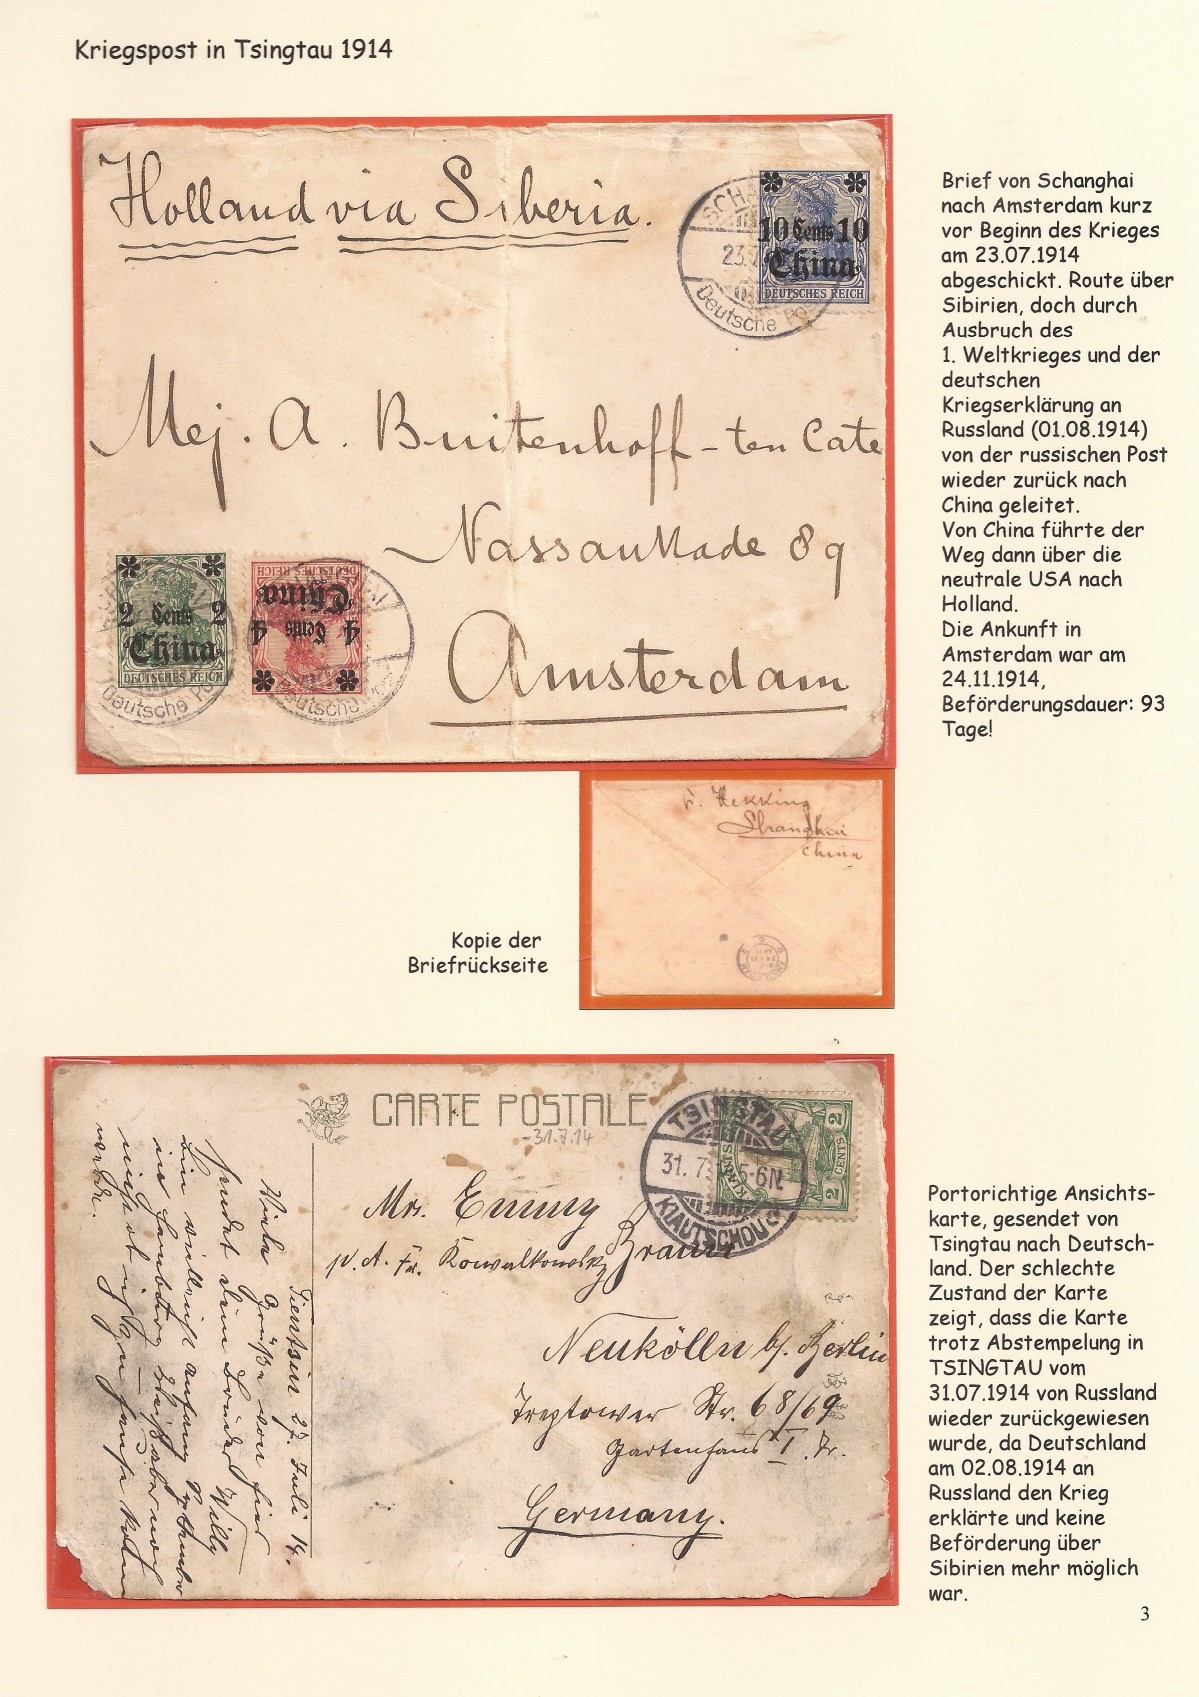 Kriegspost in Tsingtau 1914
Holland via Siberia.
SCHA
23.7
Deutsche Po
10 Cents 10
China
DEUTSCHES REICH
Mej. A. Buitenhoff-ten Cate
Nassaukade 89
Amsterdam
2 Cents 2
China
DEUTSCHES REICH
Deutsche Po
DEUTSCHES REICH
China
4 Cents 4
Deutsche
Brief von Schanghai
nach Amsterdam kurz
vor Beginn des Krieges
am 23.07.1914
abgeschickt. Route über
Sibirien, doch durch
Ausbruch des
1. Weltkrieges und der
deutschen
Kriegserklärung an
Russland (01.08.1914)
von der russischen Post
wieder zurück nach
China geleitet.
Von China führte der
Weg dann über die
neutrale USA nach
Holland.
Die Ankunft in
Amsterdam war am
24.11.1914,
Beförderungsdauer: 93
Tage!
Hekking
Shanghai
China
Kopie der
Briefrückseite
CARTE POSTALE
-31.7.14
TSINGTAU
31.7. 5-6N
KIAUTSCHOU
KIAUTS
2 CENTS 2
Mrs. Emmy
Braun
p. A. Fr. Konwalkowsky
Neukölln b/. Berlin
Treptower Str. 68/69
Gartenhaus I. Tr.
Germany.
Tientsin 27. Juli 14.
Viele Grüße von hier
sendet dein Bruder Willy
Bin vielleicht anfang
in Hamburg Weiß aber noch
nicht ob ich nach Hause
werde.
Portorichtige Ansichts-
karte, gesendet von
Tsingtau nach Deutsch-
land. Der schlechte
Zustand der Karte
zeigt, dass die Karte
trotz Abstempelung in
TSINGTAU vom
31.07.1914 von Russland
wieder zurückgewiesen
wurde, da Deutschland
am 02.08.1914 an
Russland den Krieg
erklärte und keine
Beförderung über
Sibirien mehr möglich
war.
3